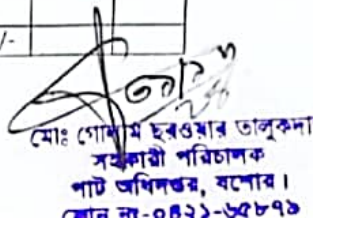 /-
মোঃ গোলাম ছরওয়ার তালুকদা
সহকারী পরিচালক
পাট অধিদপ্তর, যশোর।
ফোন নং-০৪২১-৬৫৮৭১